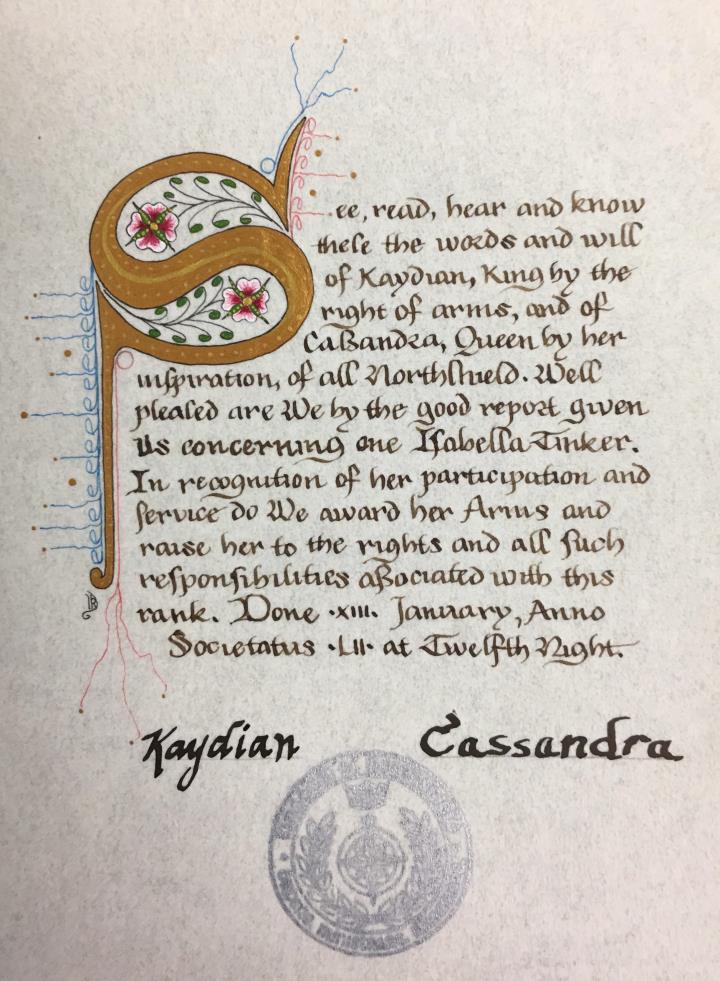 See, read, hear and know
theſe the words and will
of Kaydian, King by the
right of arms, and of
Caßandra, Queen by her
inſpiration, of all Northſhield. Well
pleaſed are We by the good report given
Us concerning one Iſabella Tinker.
In recognition of her participation and
ſervice do We award her Arms and
raise her to the rights and all ſuch
reſponſibilities aßociated with this
rank. Done ·XIII· January, Anno
Societatus ·LII· at Twelfth Night.
Kaydian Cassandra